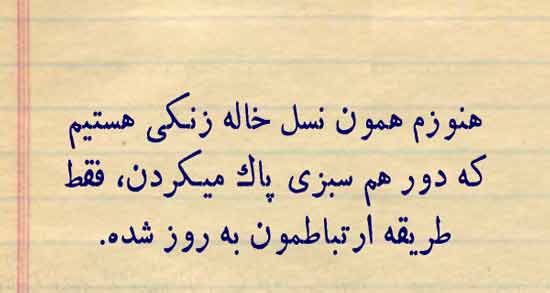 هنوزم همون نسل خاله زنکی هستیم
که دور هم سبزی پاک میکردن، فقط
طریقه ارتباطمون به روز شده.